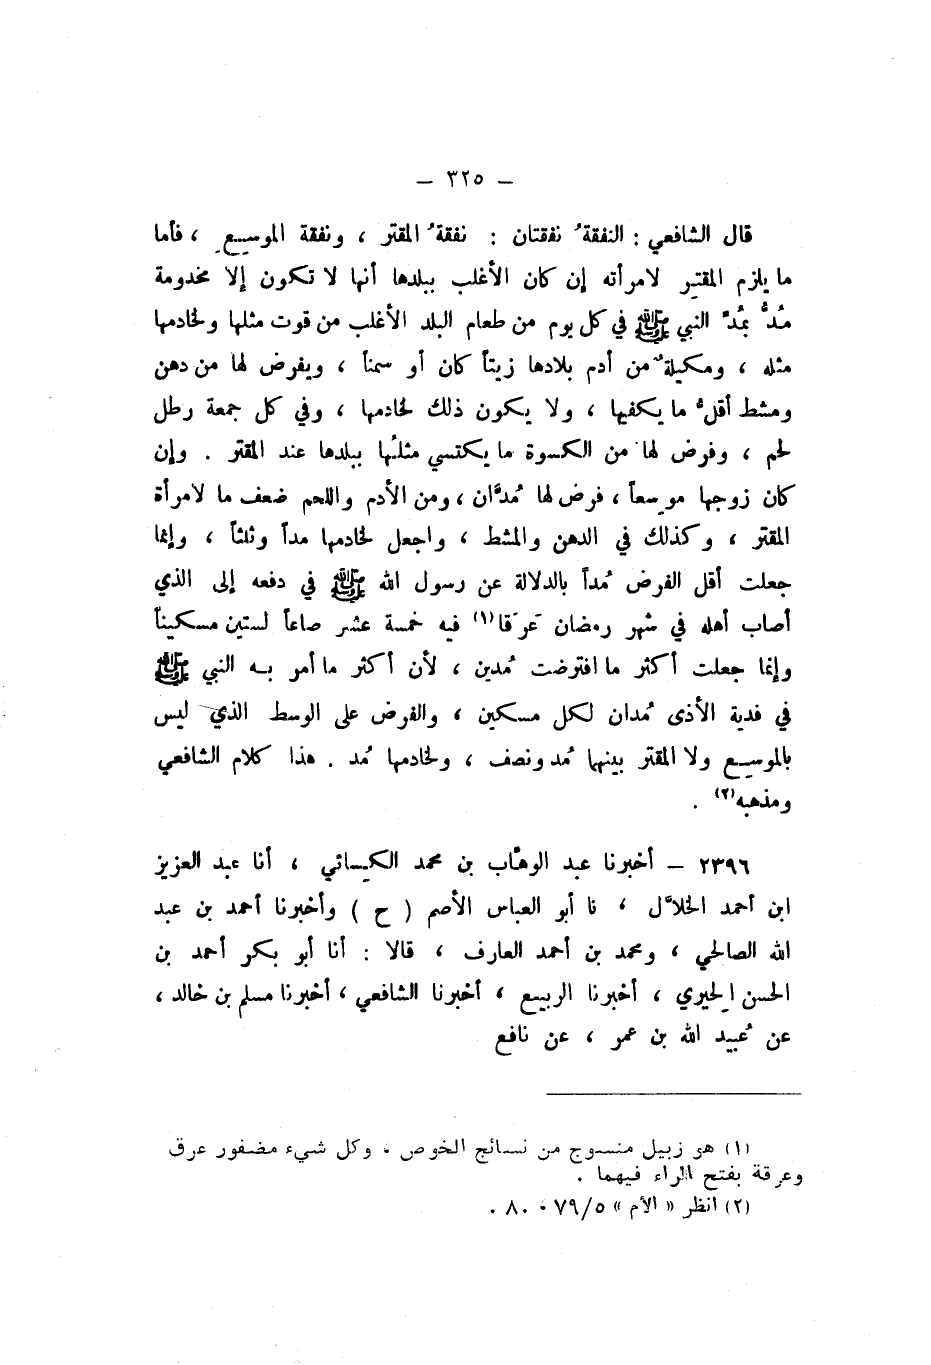 — ٣٢٥ —
قال الشافعي : النفقةُ نفقتان : نفقةُ المقتر ، ونفقة الموسِع ، فأما
ما يلزم المقتِر لامرأته إن كان الأغلب ببلدها أنها لا تكون إلا مخدومة
مُدٌّ بمُدِّ النبي ﷺ في كل يوم من طعام البلد الأغلب من قوت مثلها ولخادمها
مثله ، ومكيلةٌ من أدم بلادها زيتاً كان أو سمناً ، ويفرض لها من دهن
ومشط أقلُّ ما يكفيها ، ولا يكون ذلك لخادمها ، وفي كل جمعة رطل
لحم ، وفرض لها من الكسوة ما يكتسي مثلُها ببلدها عند المقتر . وإن
كان زوجها موسِعاً ، فرض لها مُدَّان ، ومن الأدم واللحم ضعف ما لامرأة
المقتر ، وكذلك في الدهن والمشط ، واجعل لخادمها مداً وثلثاً ، وإنما
جعلت أقل الفرض مُداً بالدلالة عن رسول الله ﷺ في دفعه إلى الذي
أصاب أهله في شهر رمضان عَرَقا(١) فيه خمسة عشر صاعاً لستين مسكيناً
وإنما جعلت أكثر ما افترضت مُدين ، لأن أكثر ما أمر به النبي ﷺ
في فدية الأذى مُدان لكل مسكين ، والفرض على الوسط الذي ليس
بالموسِع ولا المقتر بينهما مُد ونصف ، ولخادمها مُد . هذا كلام الشافعي
ومذهبه(٢) .
٢٣٩٦ — أخبرنا عبد الوهَّاب بن محمد الكِسائي ، أنا عبد العزيز
ابن أحمد الخلاَّل ، نا أبو العباس الأصم ( ح ) وأخبرنا أحمد بن عبد
الله الصالحي ، ومحمد بن أحمد العارف ، قالا : أنا أبو بكر أحمد بن
الحسن الحِيري ، أخبرنا الربيع ، أخبرنا الشافعي ، أخبرنا مسلم بن خالد ،
عن عُبيد الله بن عمر ، عن نافع
(١) هو زبيل منسوج من نسائج الخوص ، وكل شيء مضفور عرق
وعرقة بفتح الراء فيهما .
(٢) انظر « الأم » ٥/٧٩ ، ٨٠ .